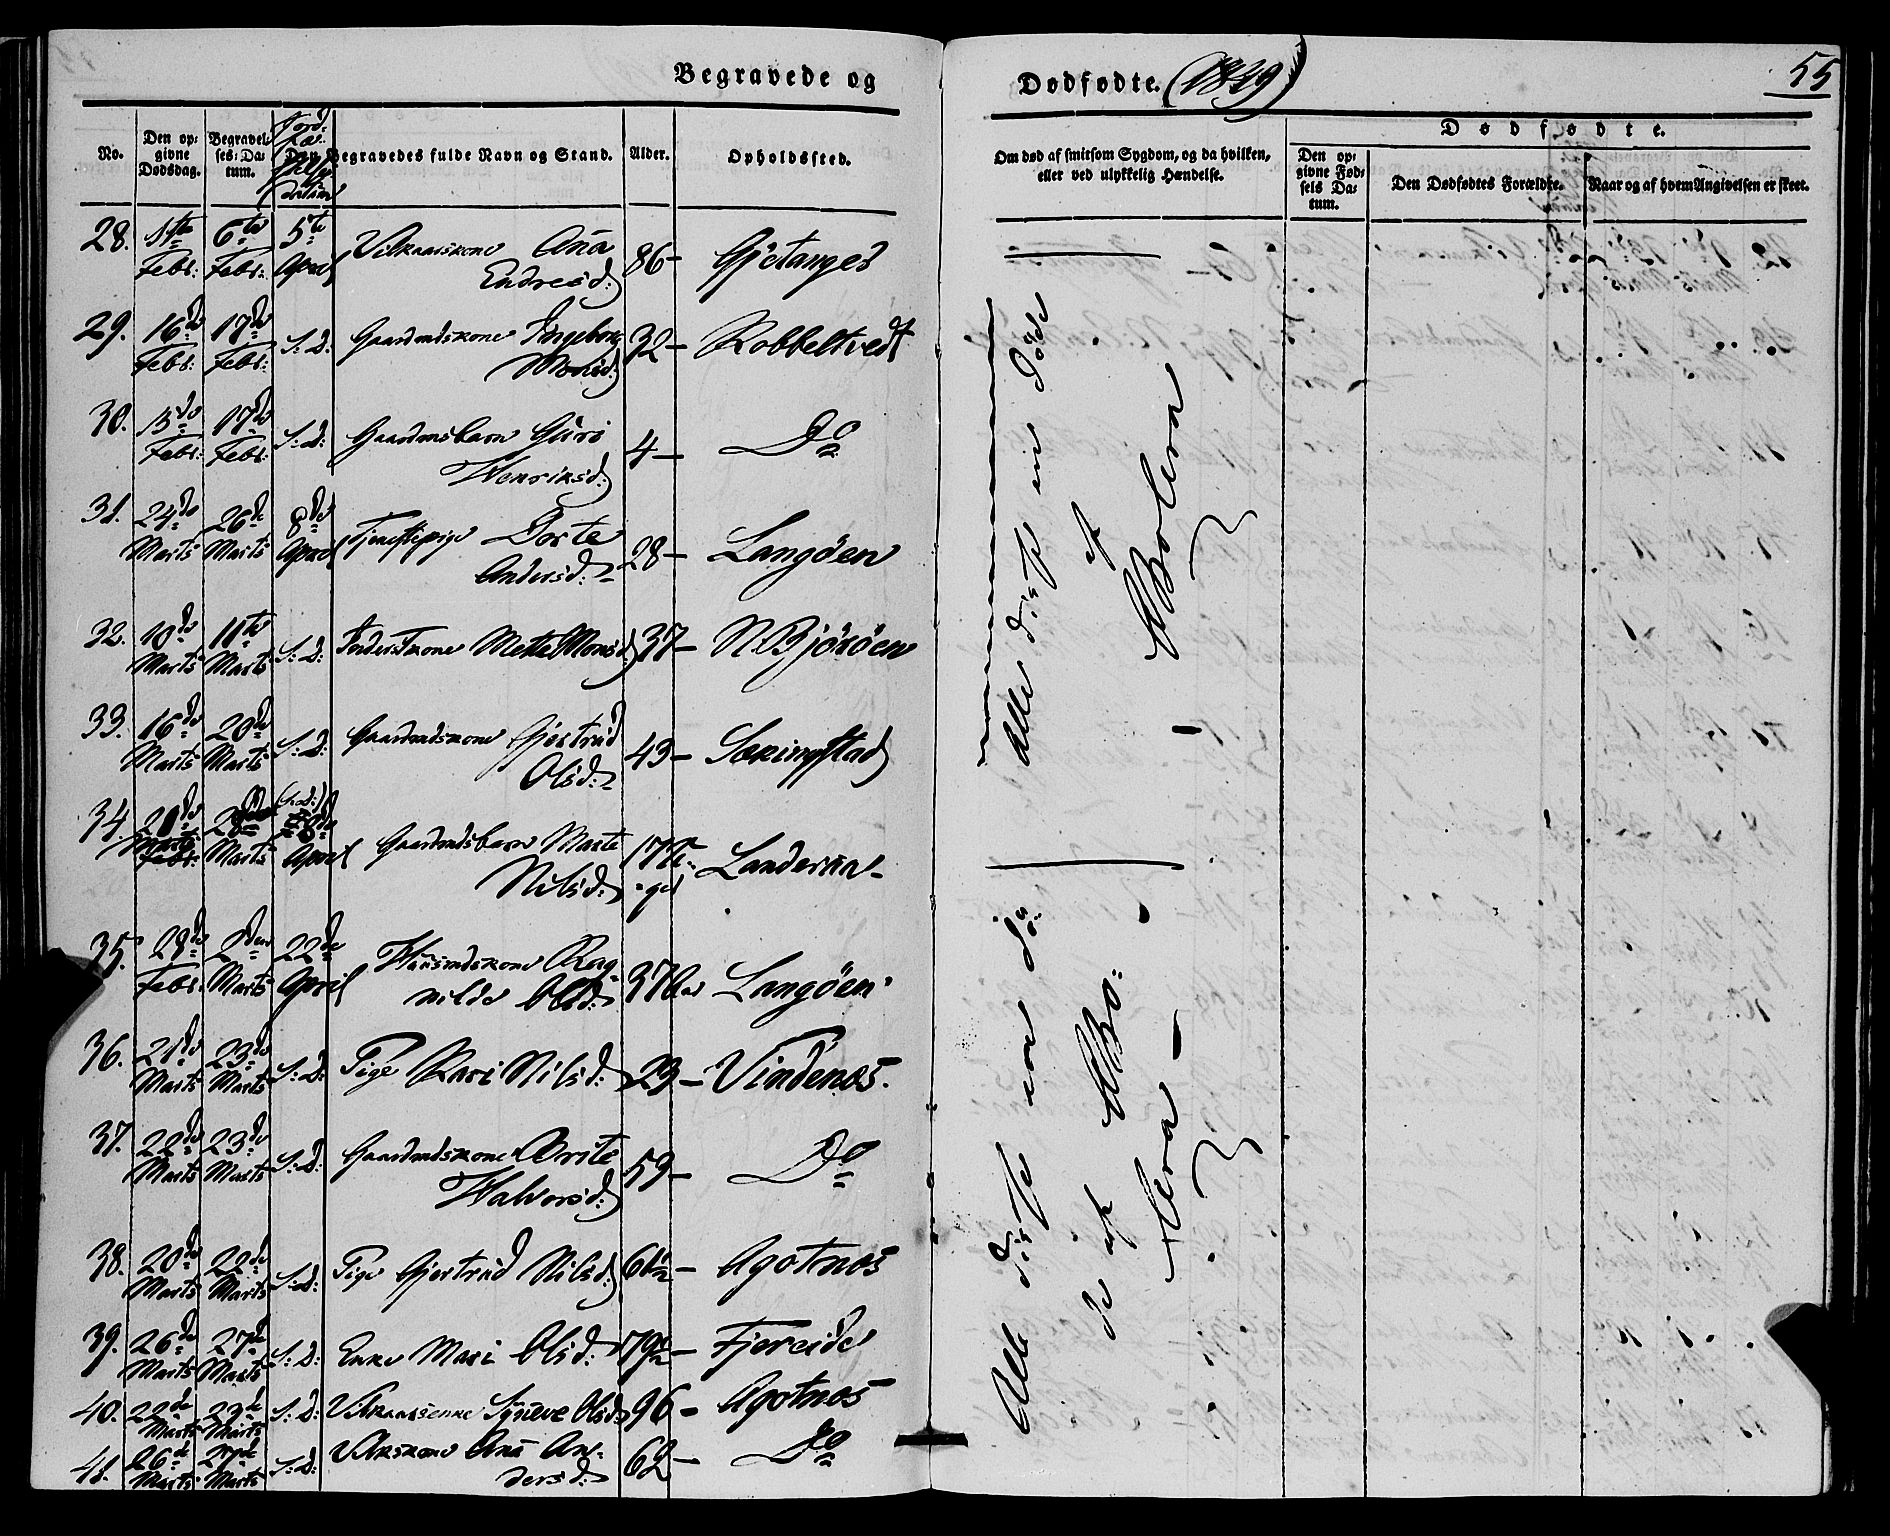 Begravede og
Dødfødte. (1849)
55
No.
Den opgivne Dødsdag.
Begravelses-Datum.
Jord-
Den Begravedes fulde Navn og Stand.
Alder.
Opholdssted.
Om død af smitsom Sygdom, og da hvilken, eller ved ulykkelig Hændelse.
Dødfødte.
Den opgivne Fødsels Datum.
Den Dødfødtes Forældre.
Naar og af hvem Angivelsen er skeet.
28. Febr: 6te Febr: 5te April Vilkaarskone Ana Endresd: 86 - Gjetanger
29. 16de Febr: 17de Febr: S: D: Gaardmdskone Ingeborg Monsd: 32 - Kobbeltvedt
30. 15de Febr: 17de Febr: S: D: Gaardmdsbarn Guri Henriksd: 4 - Do
31. 24de Marts 26de Marts 8de April Tjenestepige Dorte Andersd: 28 - Langöen
32. 10de Marts 11te Marts S: D: Mette Monsd: 37 - N. Björöen
33. 16de Marts 20de Marts S: D: Gaardmdskone Gjertrud Olsd: 43 - Sækingstad
34. Marts 28de Marts April Gaardmdsbarn Marte Nilsd: 17 Landerūn -
35. 28de Febr: 2den Marts 22de April Huusmdskone Ragnilde Olsd: 37 Langöen
36. 21de Marts 23de Marts S: D: Pige Kari Nilsd: 23 - Vindenes.
37. 22de Marts 23de Marts S: D: Gaardmdskone Brite Halvorsd: 59 - Do
38. 20de Marts 22de Marts S: D: Pige Gjertrud Nilsd: 61½ - Agotnes
39. 26de Marts 27de Marts S: D: Enke Mari Olsd: 79½ - Fjereide
40. 22de Marts 23de Marts S: D: Vilkaarsenke Synneve Olsd: 96 - Agotnes
41. 26de Marts 27de Marts S: D: Vilkskone Ana Andersd: 62 - Do
Alle disse ere døde
af
Kolera
Alle disse ere dö-
de af Ko-
lera -